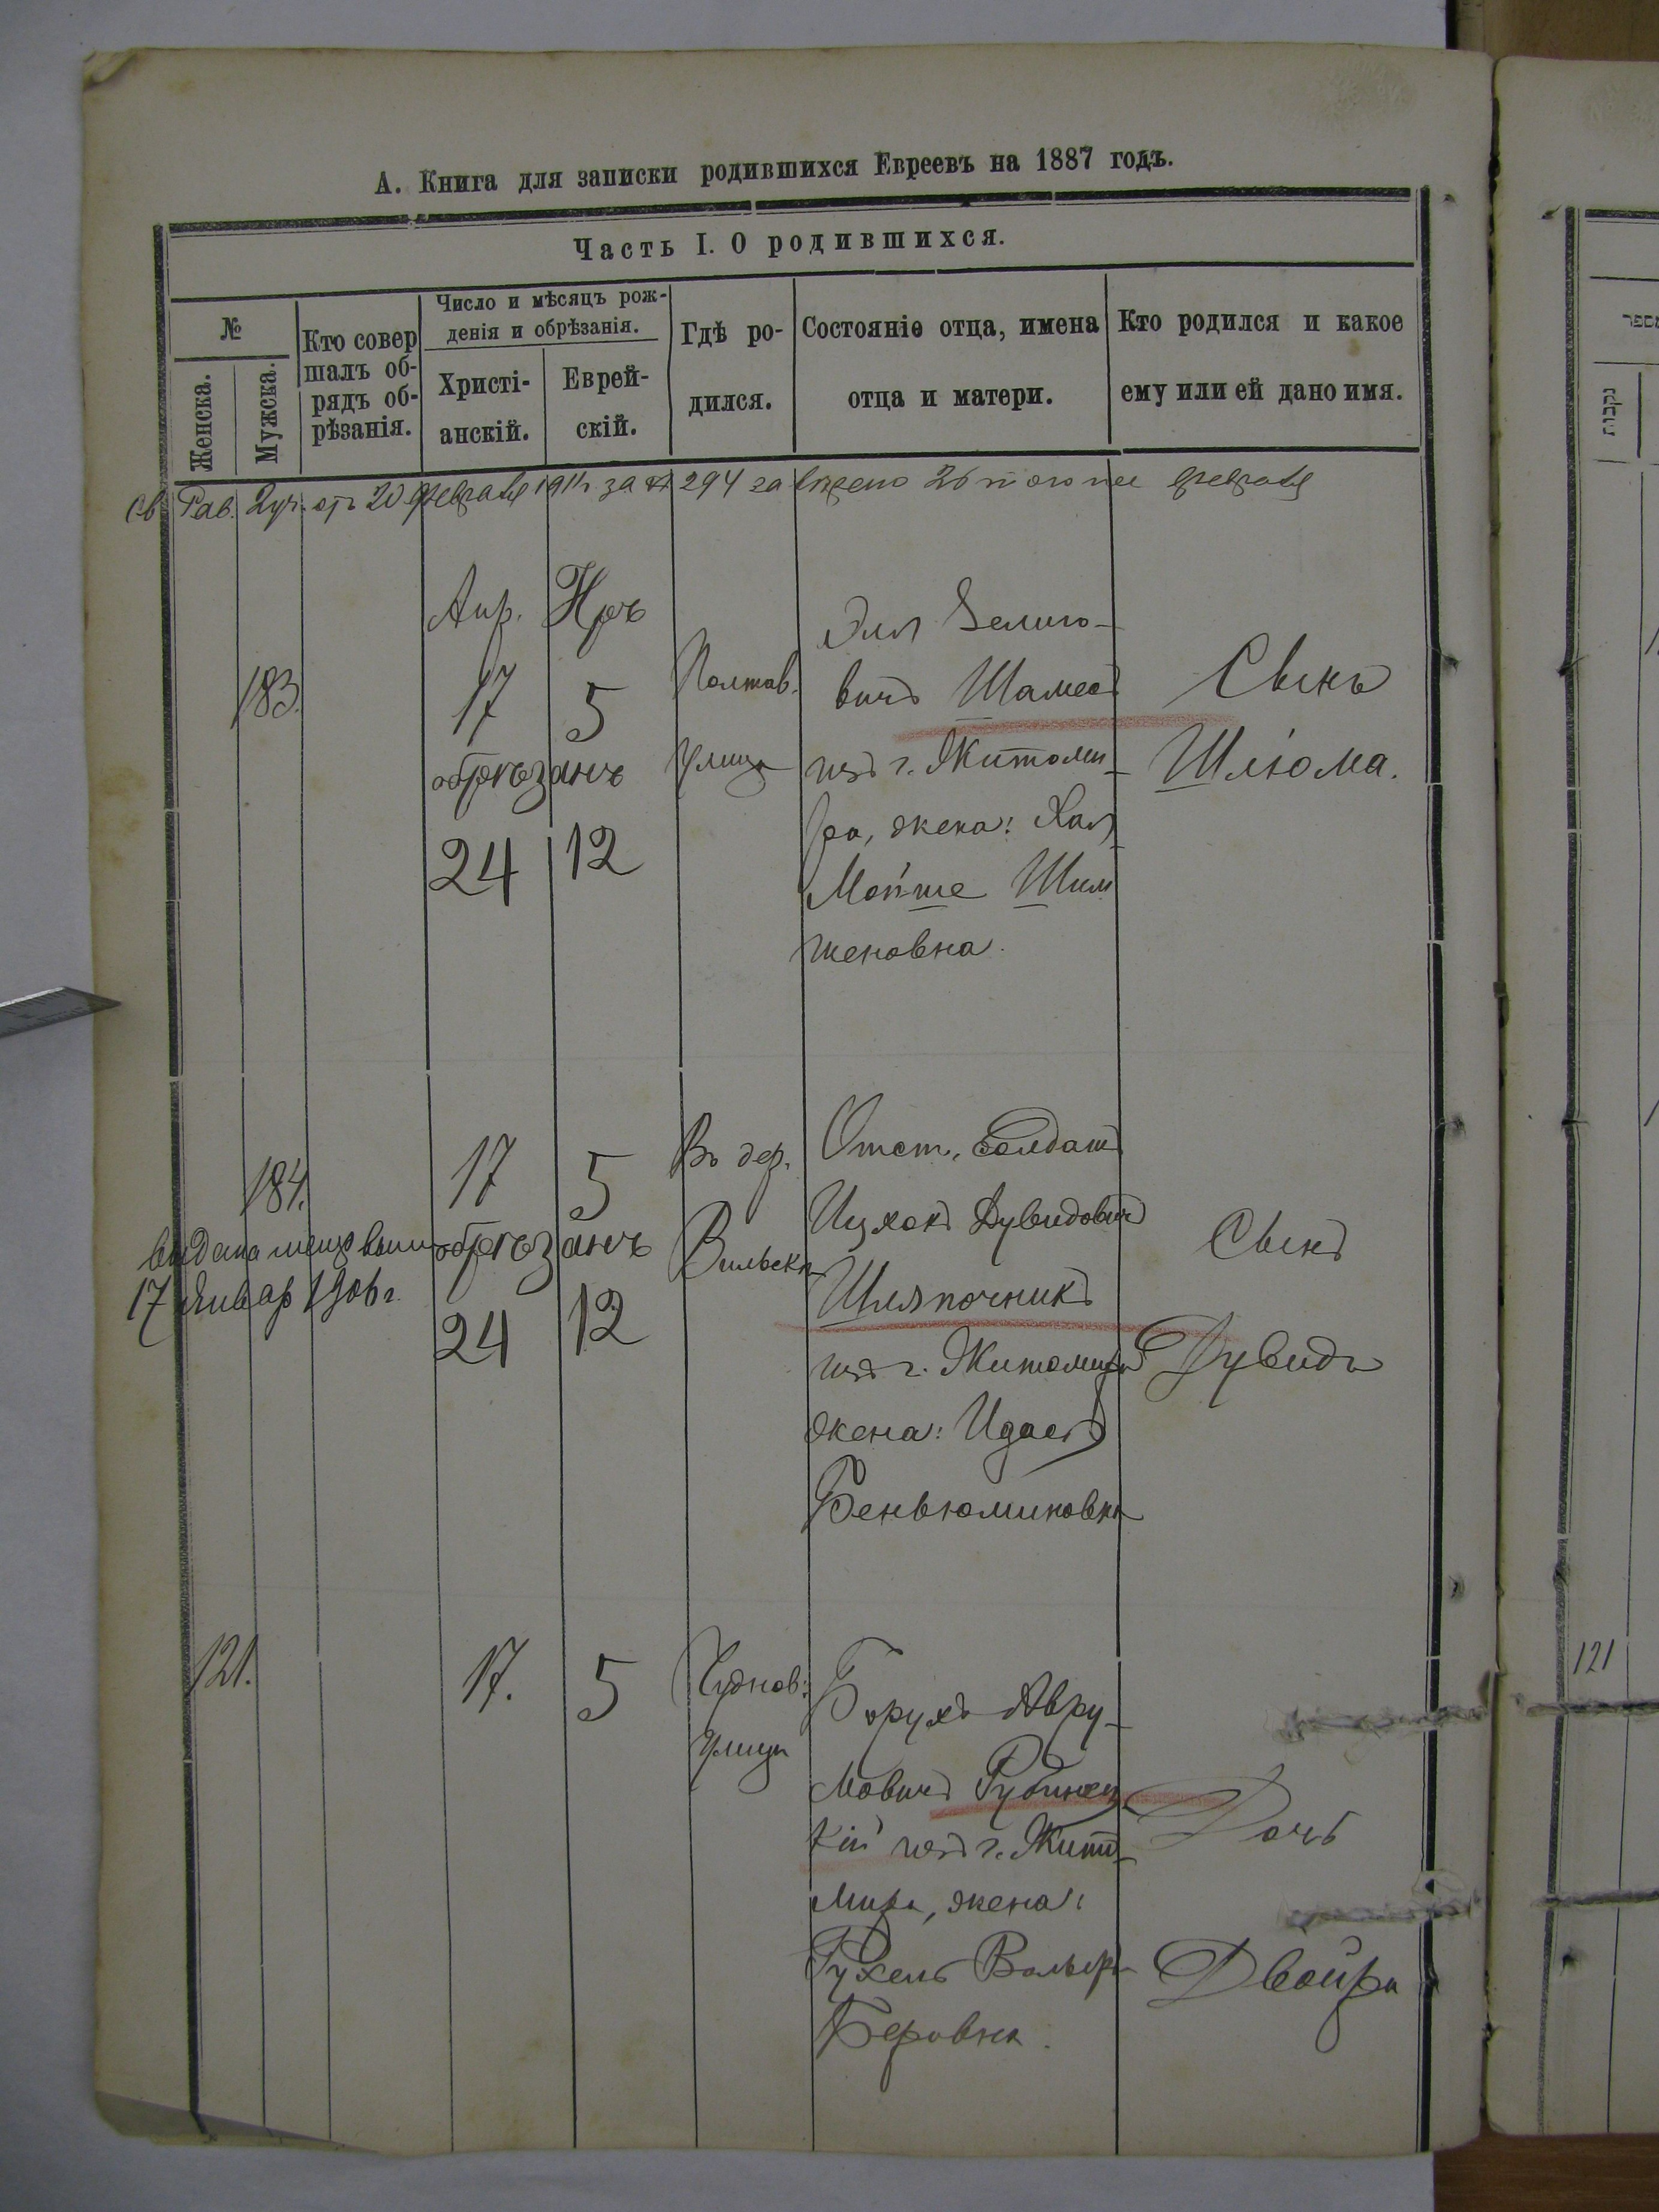 А. Книга для записки родившихся Евреевъ на 1887 годъ.
Часть I. О родившихся.
№
Женска.
Мужска.
Кто совер
шалъ об-
рядъ об-
рѣзанія.
Число и мѣсяцъ рож-
денія и обрѣзанія.
Христі-
анскій.
Еврей-
скій.
Гдѣ ро-
дился.
Состояніе отца, имена
отца и матери.
Кто родился и какое
ему или ей дано имя.
Св Рав. 2уч. отъ 20 февраля 1911 за № 294 26 того же февраля
183.
Апр.
17
обрѣзанъ
24
5
12
Полтав.
улица
Эля Зелиго-
вичъ Шамесъ
изъ г. Житоми-
ра, жена: Хая
Мойше Шим
шеновна.
Сынъ
Шліома.
184.
выдана
17 Январ 1906 г.
17
обрѣзанъ
24
5
12
Въ дер.
Вильскъ
Отст. Солдатъ
Ицхокъ Дувидовичъ
Шляпочникъ
изъ г. Житомира
жена: Идасъ
Беньюминовна
Сынъ
Дувидъ
121.
17.
5
Чуднов:
улица
Борухъ Авру-
мовичъ Рубинец
кій изъ г. Жито-
мира, жена:
Рухель Вольф-
Беровна.
Дочь
Двойра
נקבות
121